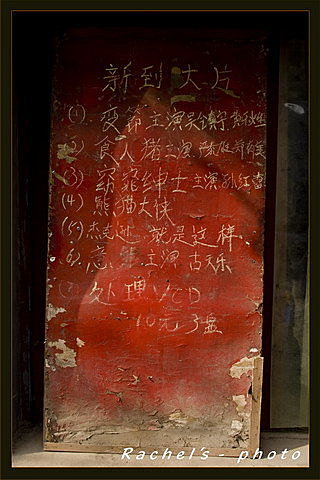 新到大片
(1) 受箭 主演吴镇宇
(2) 食人猪 主演
(3) 窈窕绅士 主演孙红雷
(4) 熊猫大侠
(5) 杰克逊 就是这样
(6) 意外 主演 古天乐
(7) 处理VCD
10元3盘
Rachel's - photo